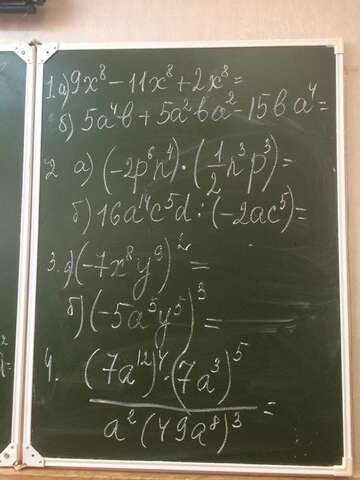 1. а) 9x⁸ - 11x⁸ + 2x⁸ =
б) 5a⁴b + 5a²ba² - 15ba⁴ =
2 а) (-2p⁶n⁴) · (-1/2 n³p³) =
б) 16a¹⁴c⁵d : (-2ac⁵) =
3. а) (-7x⁸y⁹)² =
б) (-5a⁵y⁵)³ =
4. (7a¹²)⁴ · (7a³)⁵
a² (49a⁸)³ =